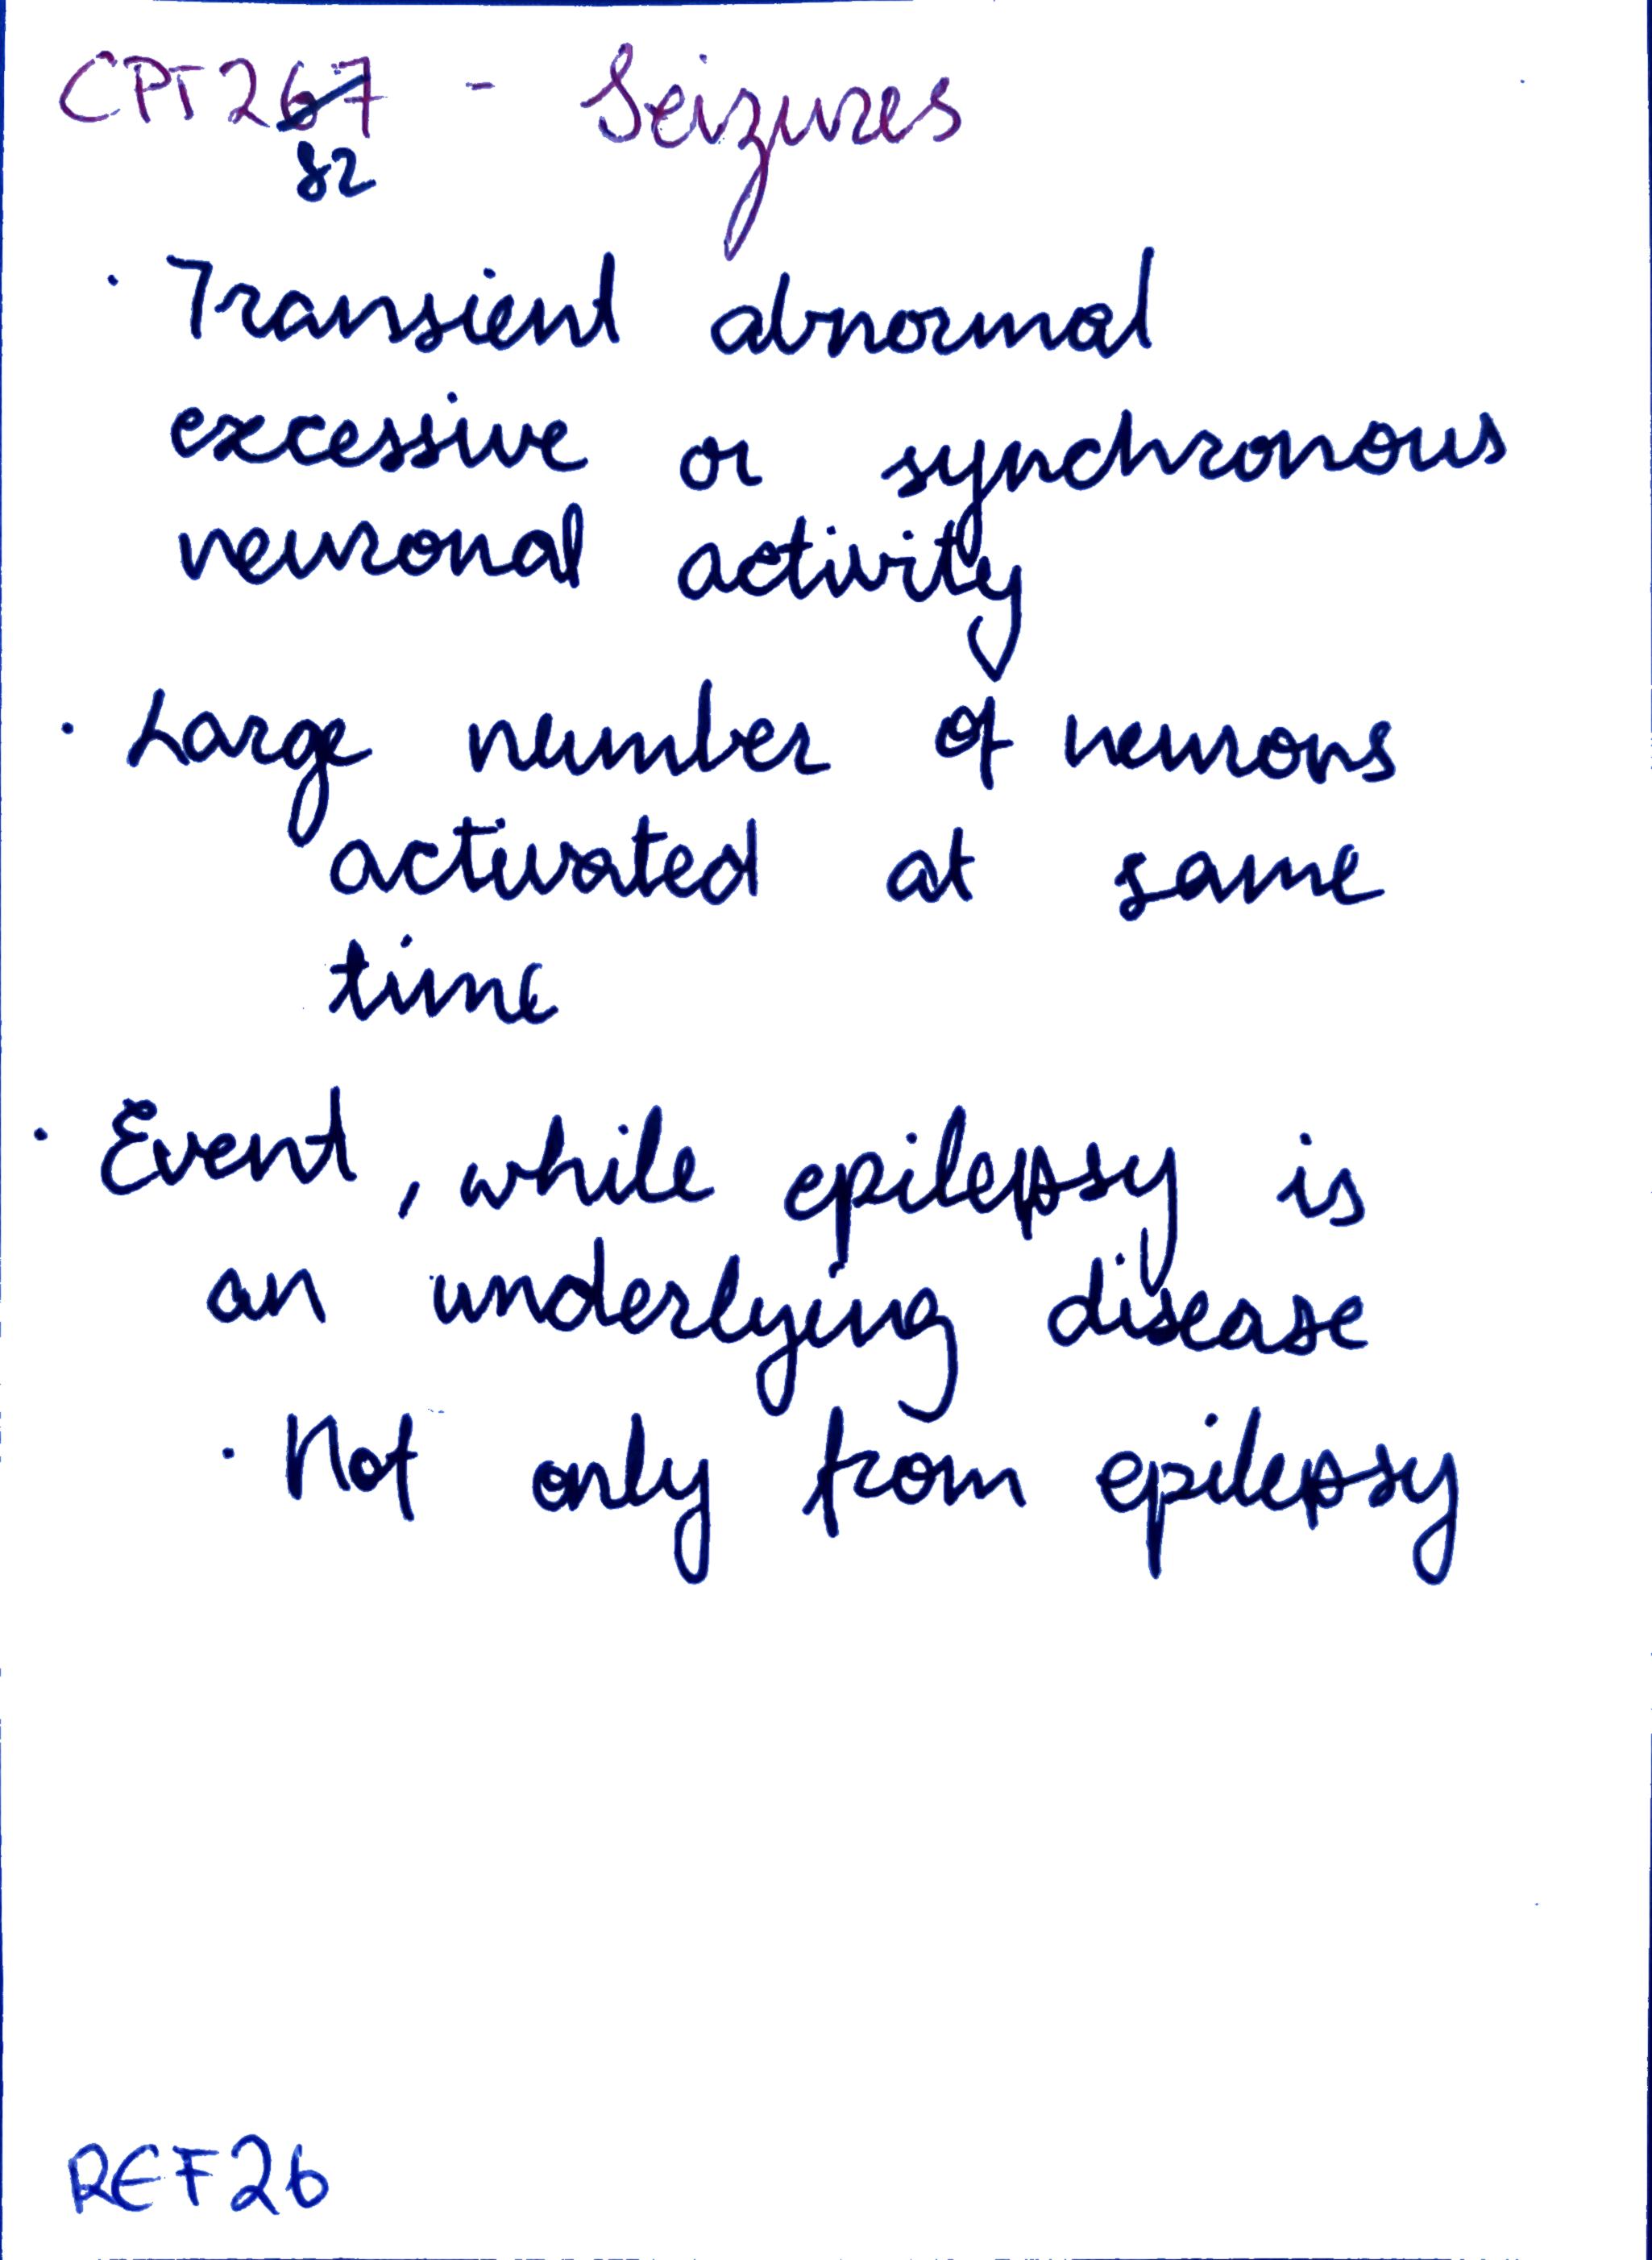 CPT267 - Seizures
82
· Transient abnormal
excessive or synchronous
neuronal activity
· Large number of neurons
activated at same
time
· Event, while epilepsy is
an underlying disease
· Not only from epilepsy
REF26